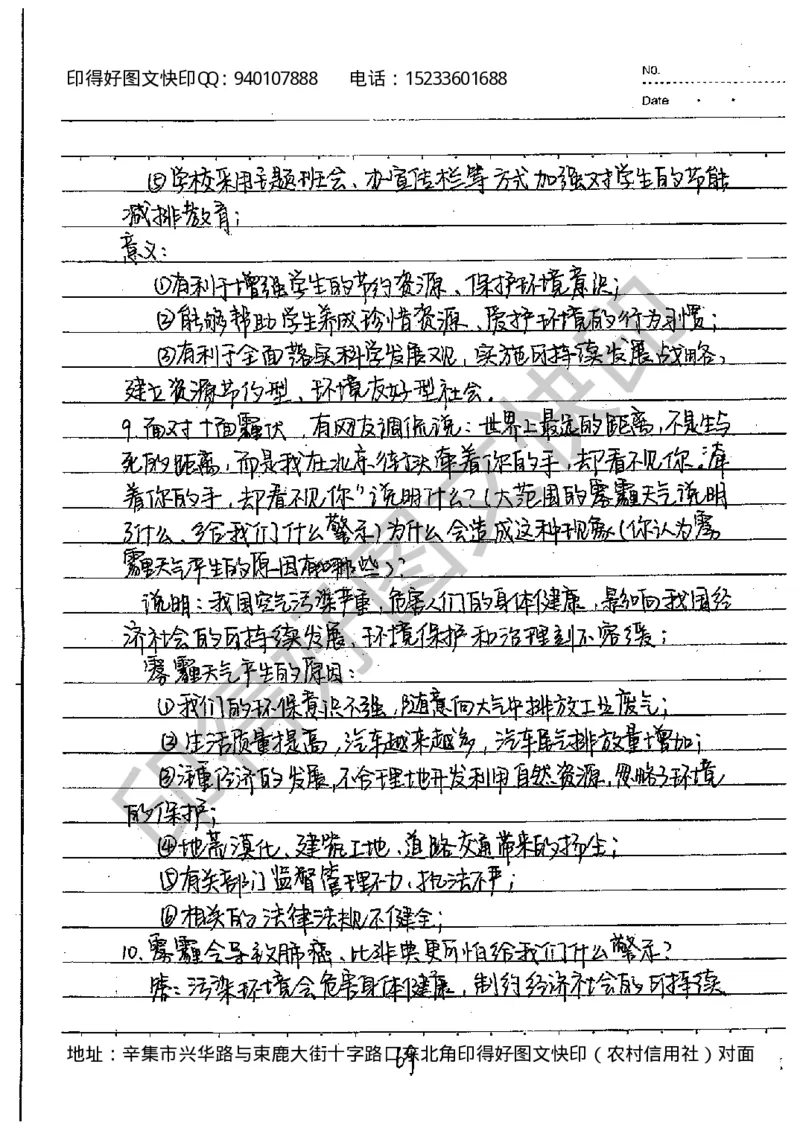 印得好图文快印QQ：940107888 电话：15233601688
No.
Date
⑤学校采用主题班会、办宣传栏等方式加强对学生的节能
减排教育；
意义：
①有利于增强学生的节约资源、保护环境意识；
②能够帮助学生养成珍惜资源、爱护环境的行为习惯；
③有利于全面落实科学发展观，实施可持续发展战略，
建立资源节约型、环境友好型社会。
9.面对十面霾伏，有网友调侃说：世界上最远的距离，不是生与
死的距离，而是我在北京街头牵着你的手，却看不见你。"牵
着你的手，却看不见你"说明什么？(大范围的雾霾天气说明
了什么、给我们什么警示)为什么会造成这种现象(你认为雾
霾天气产生的原因有哪些)？
说明：我国空气污染严重，危害人们的身体健康，影响我国经
济社会的可持续发展，环境保护和治理刻不容缓；
雾霾天气产生的原因：
①我们的环保意识不强，随意向大气中排放工业废气；
②生活质量提高，汽车越来越多，汽车尾气排放量增加；
③注重经济的发展，不合理地开发利用自然资源，忽略了环境
的保护；
④地荒漠化、建筑工地、道路交通带来的扬尘；
⑤有关部门监督管理不力，执法不严；
⑥相关的法律法规不健全；
10.雾霾会导致肺癌、比非典更可怕给我们什么警示？
答：污染环境会危害身体健康，制约经济社会的可持续
地址：辛集市兴华路与束鹿大街十字路口东北角印得好图文快印（农村信用社）对面
69
印得好图文快印